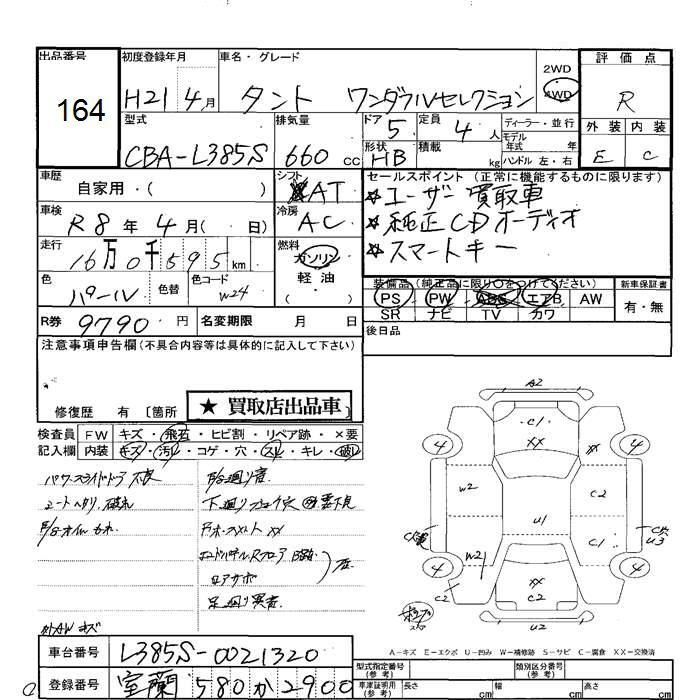 出品番号 164
初度登録年月 H21 4月
車名・グレード タント ワンダフルセレクション
2WD
4WD
評価点 R
型式 CBA-L385S
排気量 660 cc
ドア 5 定員 4人
ディーラー・並行
モデル年式 年
形状 HB 積載 kg
ハンドル 左・右
外装 内装
E C
車歴 自家用・( )
シフト AT
セールスポイント (正常に機能するものに限ります)
☆ユーザー買取車
☆純正CDオーディオ
☆スマートキー
車検 R8年 4月( 日)
冷房 AC
走行 16万0千595km
燃料 ガソリン 軽油
色 パール 色替 色コード W24
装備品 (純正品に限り○をつけてください) 新車保証書
PS PW ABS エアB AW 有・無
SR ナビ TV カワ
R券 9790 円 名変期限 月 日
後日品
注意事項申告欄(不具合内容等は具体的に記入して下さい)
修復歴 有 〔箇所 ★ 買取店出品車〕
検査員 FW キズ・飛石・ヒビ割・リペア跡・×要
記入欄 内装 キズ・汚レ・コゲ・穴・スレ・キレ・破レ
パワースライドドア不良
シートヘタリ、破れ
下廻り
足廻り異音
外AWキズ
A2
C1
XX
XX
4 4
W2 C2
U1
W2 C1
4 4
XX
C2
C2
U2
U3
A-キズ E-エクボ U-凹み W-補修跡 S-サビ C-腐食 XX-交換済
車台番号 L385S-0021320
登録番号 室蘭 580 か 2900
型式指定番号 (参考) 類別区分番号 (参考)
車庫証明用 (参考) 長さ cm 幅 cm 高さ cm